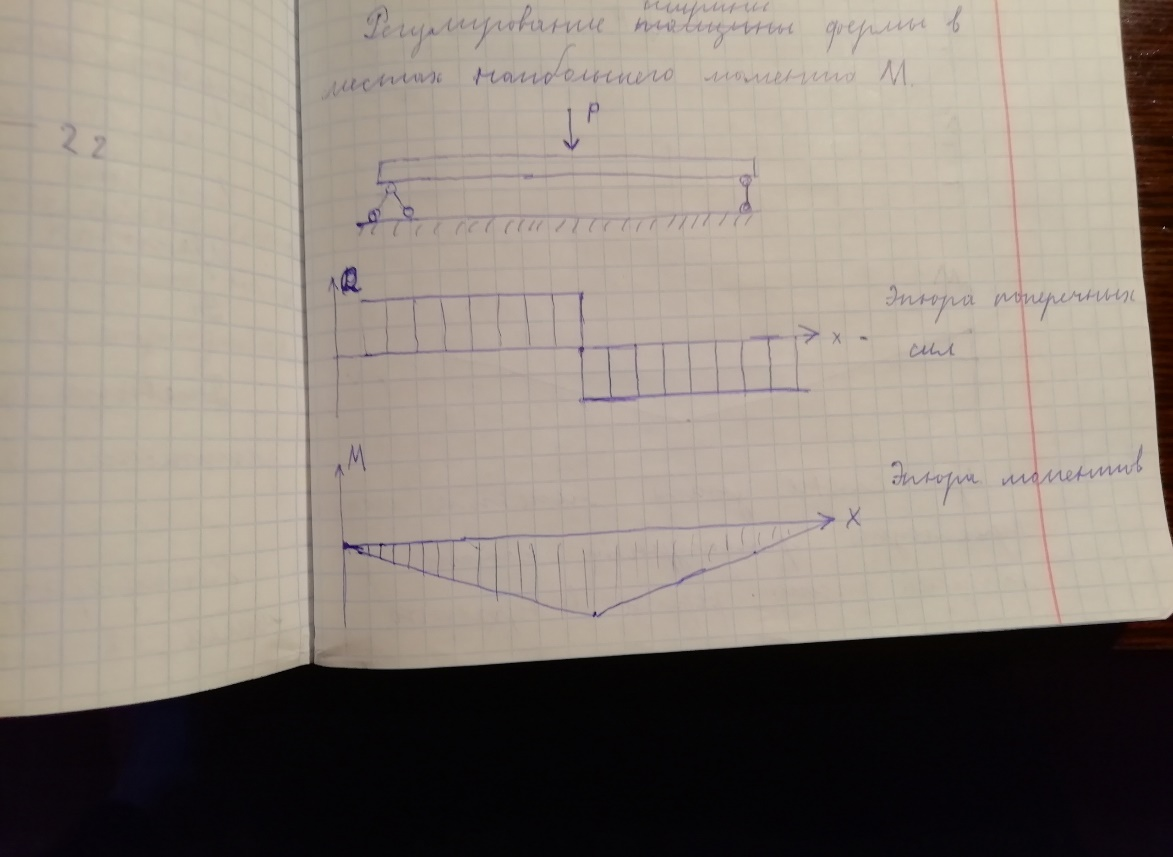 ширины
Регулирование толщины фермы в
местах наибольшего момента М.
22
P
Q
Эпюра поперечных
x -
сил
M
Эпюра моментов
X